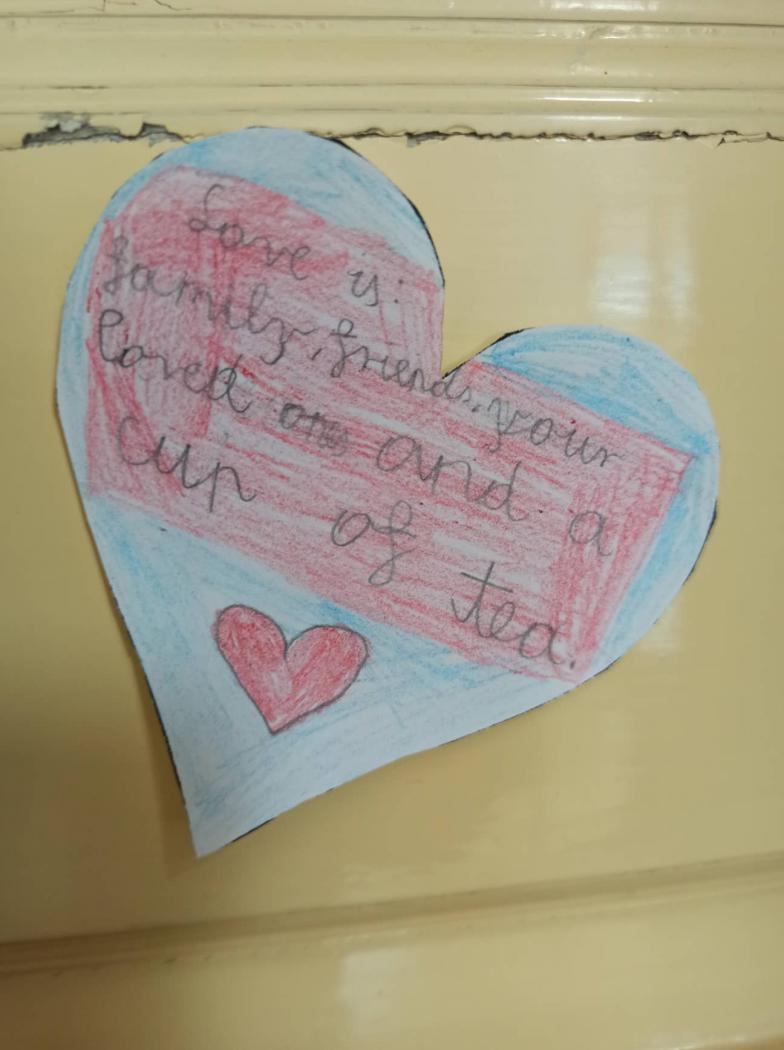 Love is:
family, friends, your
loved and a
cup of tea.